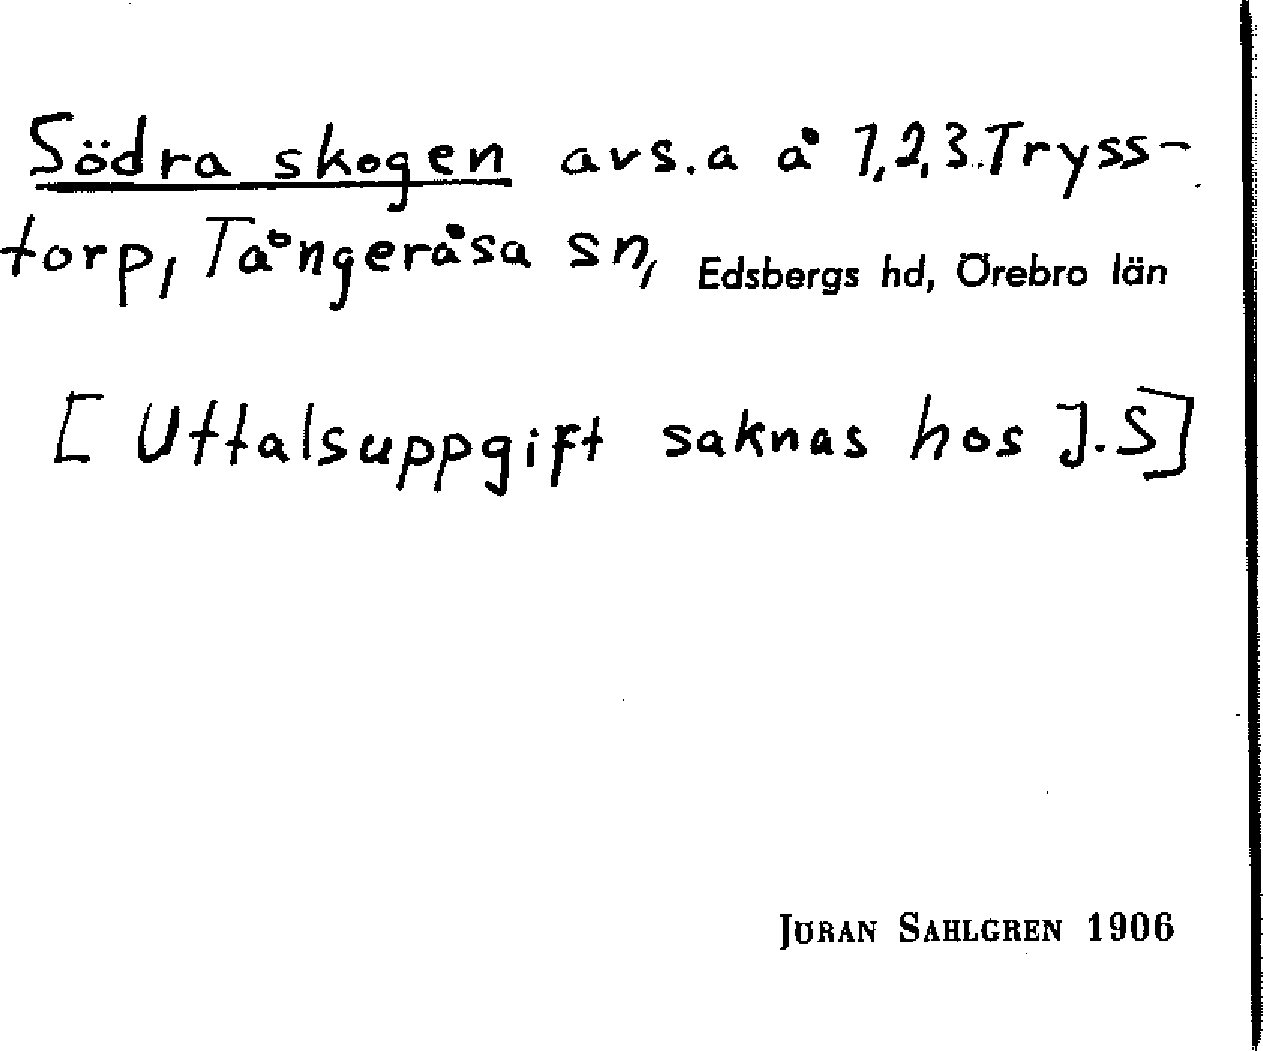 Södra skogen avs.a å 1,2,3.Tryss-
torp, Tångeråsa sn, Edsbergs hd, Örebro län
[ Uttalsuppgift saknas hos J.S]
Jöran Sahlgren 1906